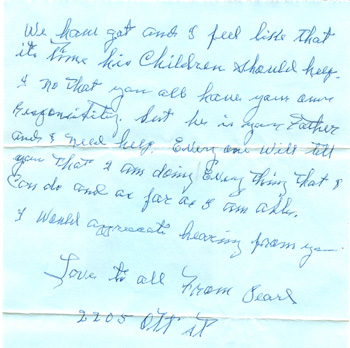 We have got and I feel like that
its time his Children should help.
I no that you all have your own
Responsitity. but he is your Father
and I need help. Every one will tell
you that I am doing Every thing that I
Can do and as far as I am able.
I Would appreciate hearing from you.
Love to all From Pearl
2205 Ott St